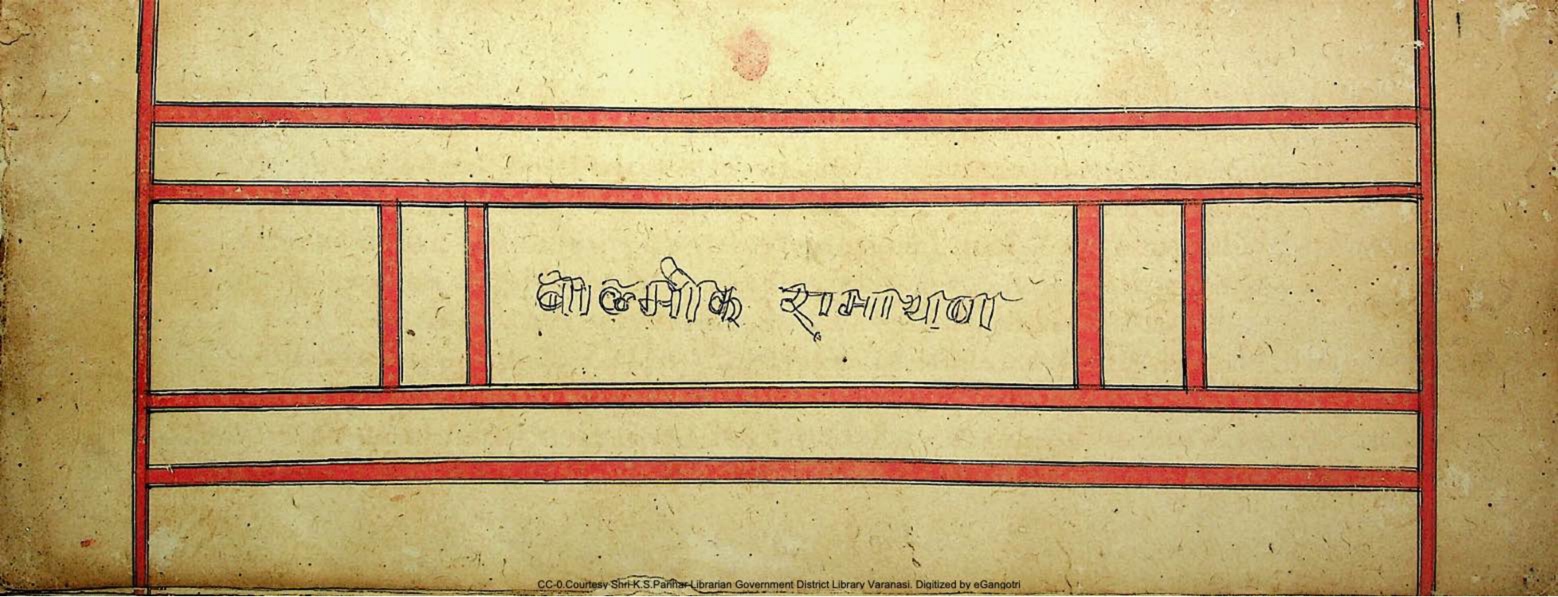 बाल्मीकि रामायण
CC-0.Courtesy Shri K.S.Parihar Librarian Government District Library Varanasi. Digitized by eGangotri